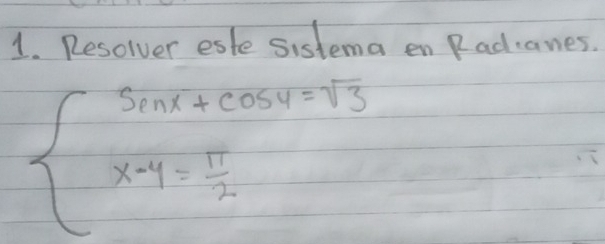 1. Resolver este sistema en Radianes.
Senx + cosy = √3
x - y = π/2